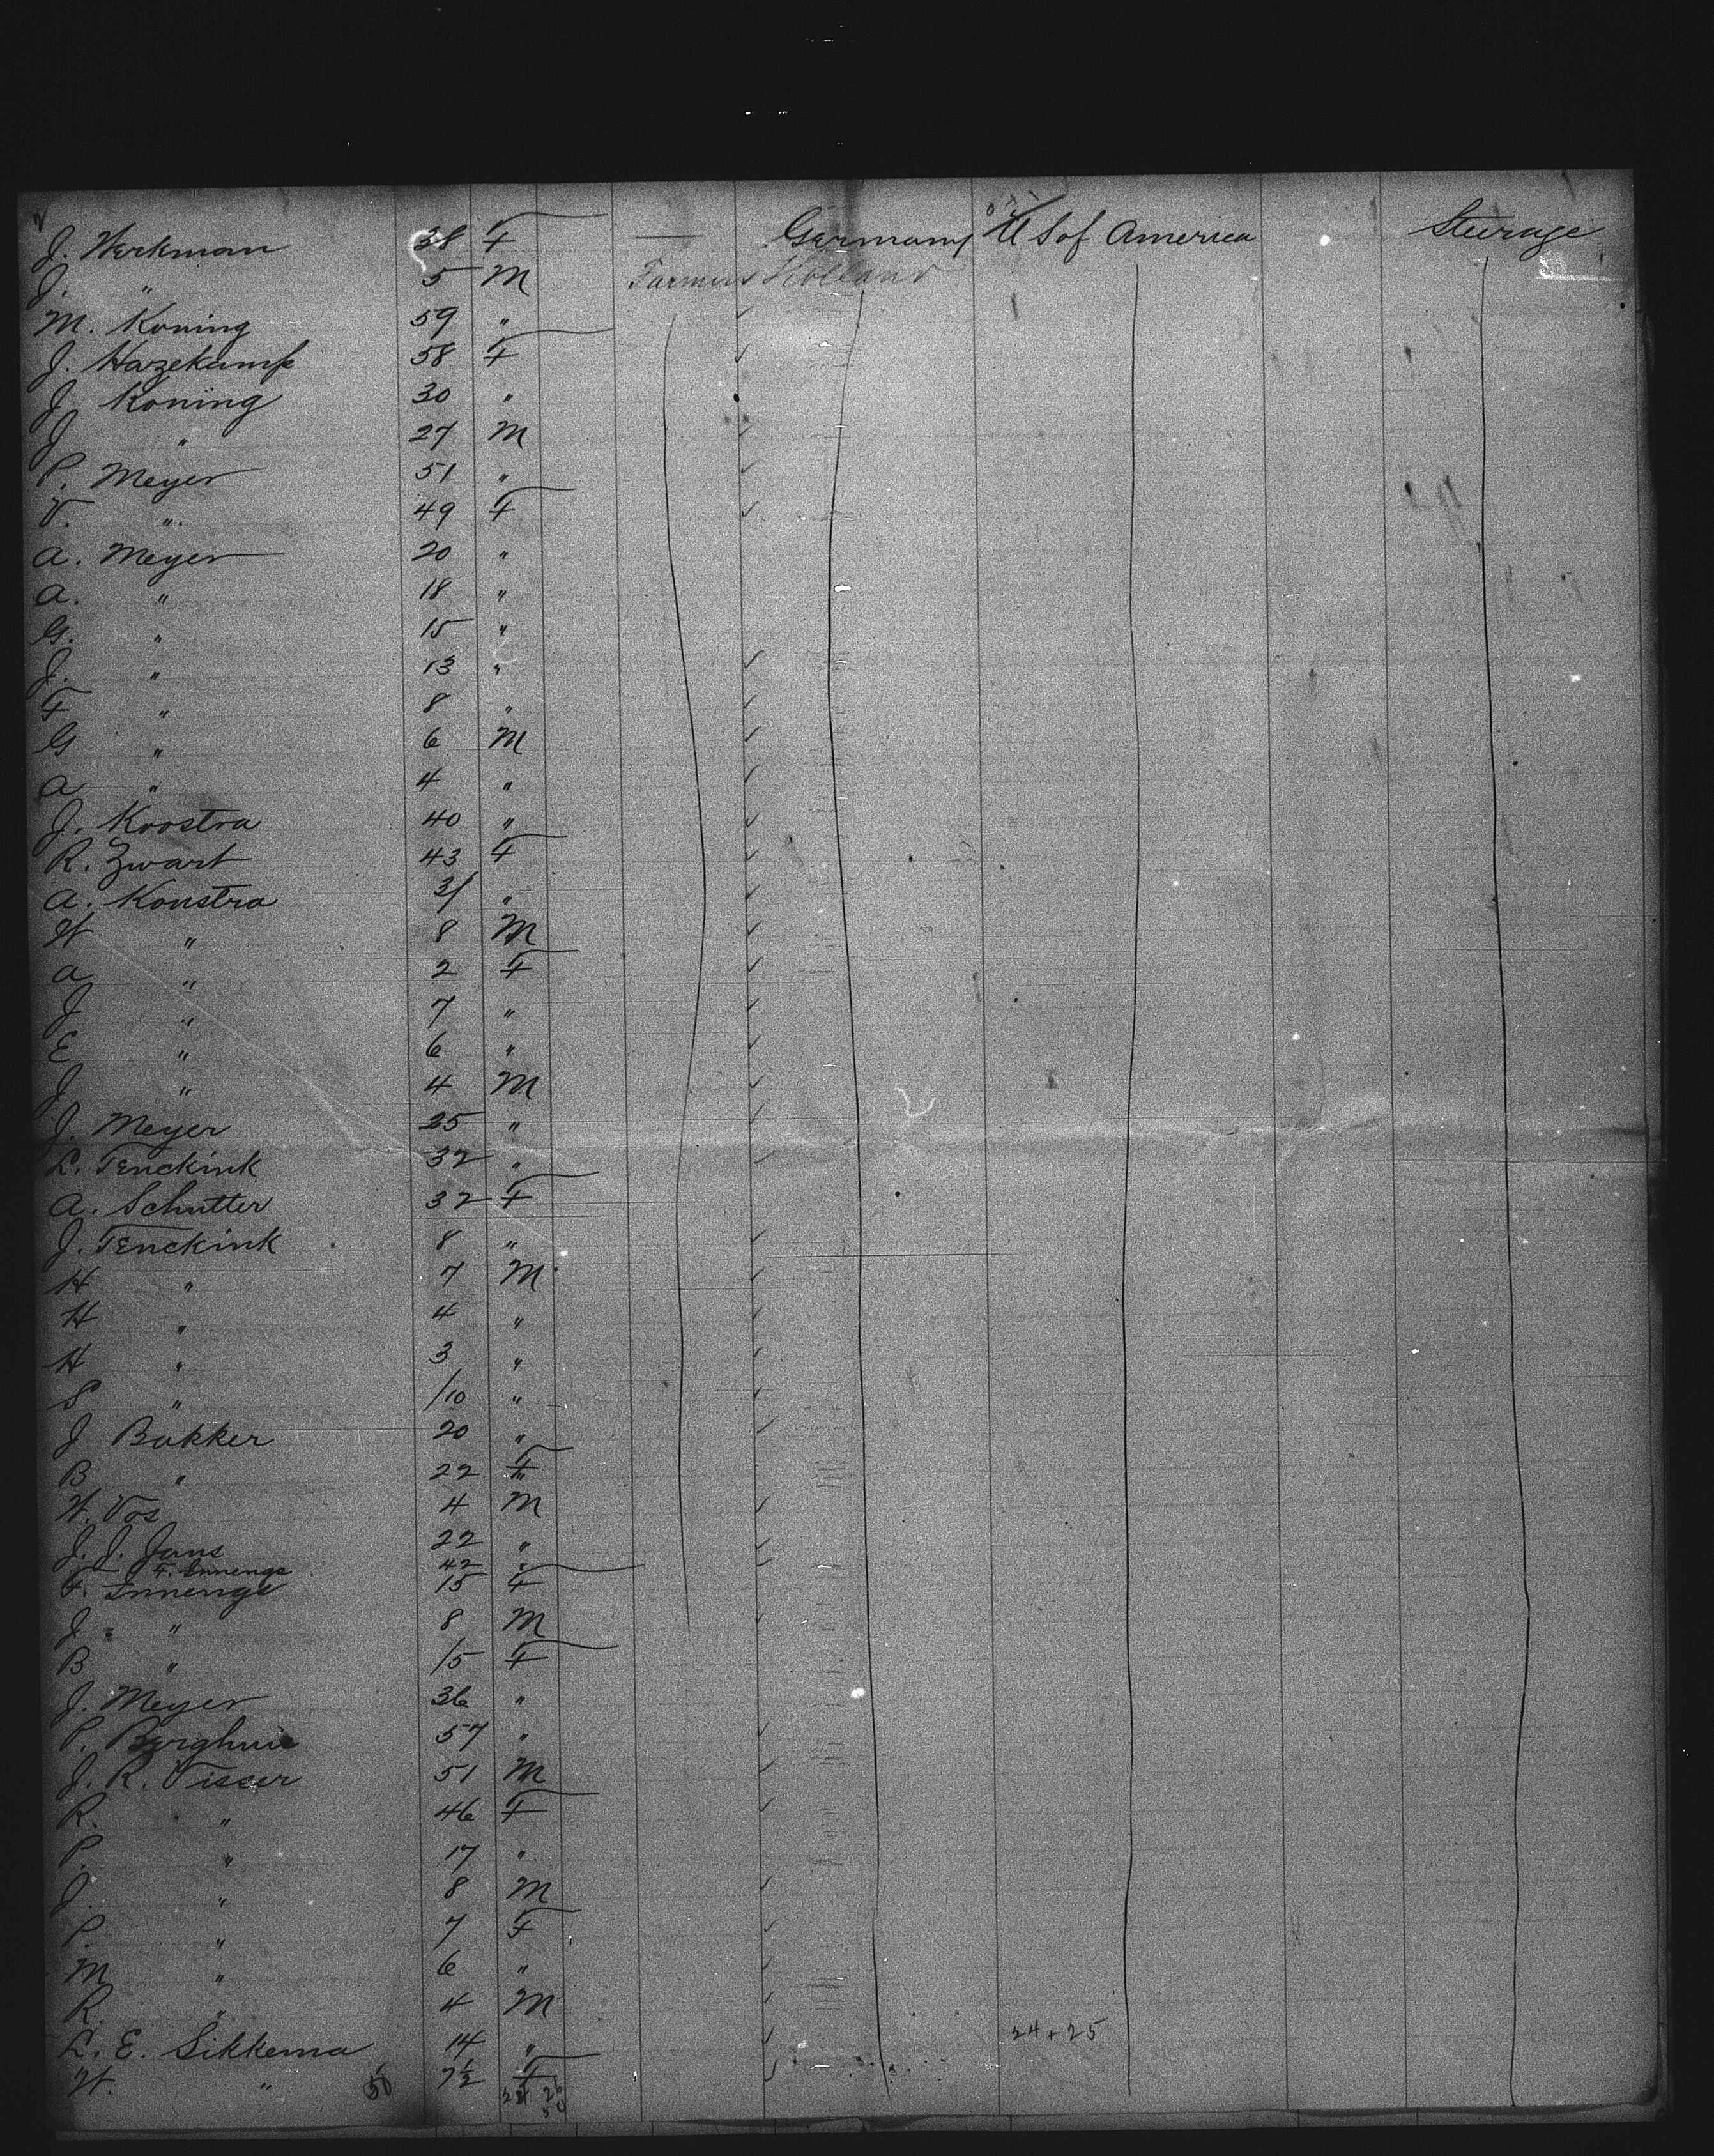 J. Werkman 38 F — Germany U S of America Steerage
J. " 5 M Farmers Holland
M. Koning 59 "
J. Hazekamp 58 F
J Koning 30 "
J " 27 M
P. Meyer 51 "
V. " 49 F
A. Meyer 20 "
A. " 18 "
G. " 15 "
J. " 13 "
F " 8 "
G " 6 M
A " 4 "
J. Koostra 40 "
R. Zwart 43 F
A. Konstra 31 "
H " 8 M
A " 2 F
J " 7 "
E " 6 "
J " 4 M
J. Meyer 25 "
L. Tenckink 32 "
A. Schutter 32 F
J. Tenckink 8 "
H " 7 M
H " 4 "
H " 3 "
S " /10 "
J Bakker 20 "
B " 22 F
H. Vos 4 M
J. J. Jans 22 "
F. Innenga 42 "
F. Innenga 15 F
J " 8 M
B " 15 F
J. Meyer 36 "
P. Berghuis 57 "
J. R. Visser 51 M
R. " 46 F
P. " 17 "
J. " 8 M
P. " 7 F
M " 6 "
R. " 4 M
L. E. Sikkema 14 " 24 + 25
H. " 50 7½ F